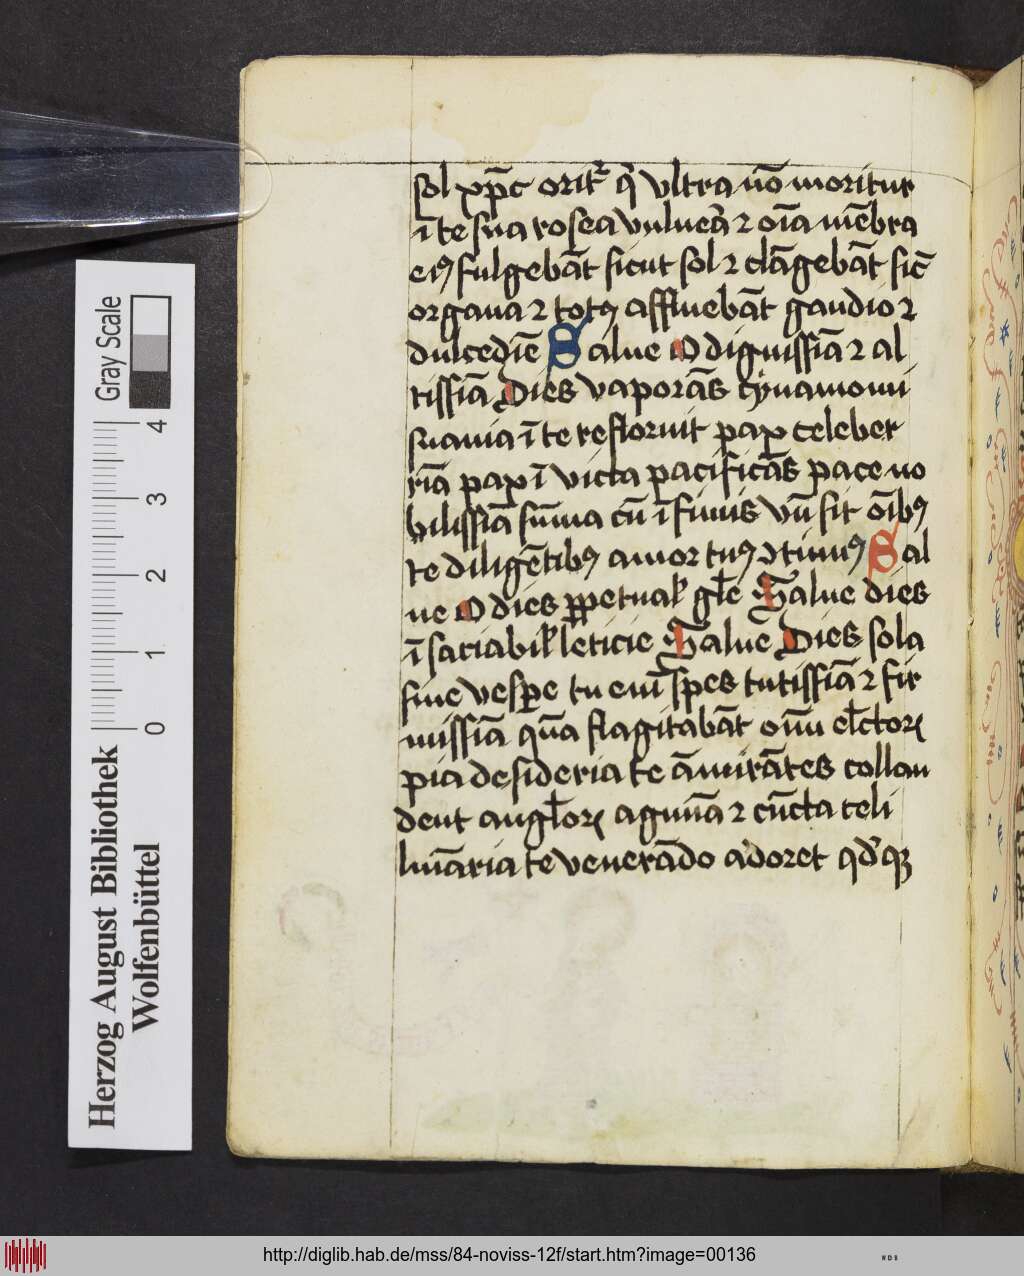 sol xp̄c orit᷑ q̄ vltra nō moritur
ī te sua rosea vulnera ꝛ oīa mēbra
eiꝰ fulgebāt sicut sol ꝛ clāgebāt sic̄
organa ꝛ totꝰ affluebāt gaudio ꝛ
dulcedīe Salue O dignissīa ꝛ al
tissīa Dies vaporās cynamomi
suauia ī te refloruit pax celeber
rīa pax ī victa pacificās pace no
bilissīa sūma cū īfimis vn̄ sit oībꝰ
te diligētibꝰ amor tuꝰ ꝯtinuꝰ Sal
ue O dies ꝑpetual̛ gl̄e Salue dies
ī saciabil̛ leticie Salue Dies sola
sine vespe tu enī spes tutissīa ꝛ fir
missīa quā flagitabāt om̄ el̄ctoꝝ
pia desideria te āmirātes collau
dent angl̄oꝝ agmīa ꝛ cūcta celi
lumīaria te venerādo adoret qd'qꝫ
Gray Scale
4
3
2
1
0
Herzog August Bibliothek
Wolfenbüttel
http://diglib.hab.de/mss/84-noviss-12f/start.htm?image=00136